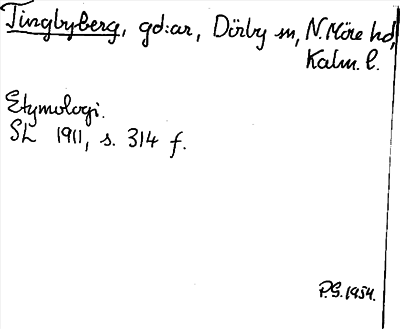 Tingbyberg, gd:ar, Dörby sn, N. Möre hd,
Kalm. l.
Etymologi.
SL 1911, s. 314 f.
P.G. 1954.